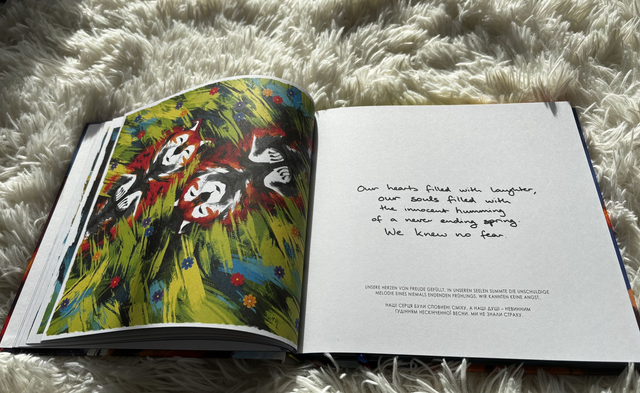 Our hearts filled with laughter,
our souls filled with
the innocent humming
of a never ending spring.
We knew no fear.
UNSERE HERZEN VON FREUDE GEFÜLLT, IN UNSEREN SEELEN SUMMTE DIE UNSCHULDIGE
MELODIE EINES NIEMALS ENDENDEN FRÜHLINGS. WIR KANNTEN KEINE ANGST.
НАШІ СЕРЦЯ БУЛИ СПОВНЕНІ СМІХУ, А НАШІ ДУШІ – НЕВИННИМ
ГУДІННЯМ НЕСКІНЧЕННОЇ ВЕСНИ. МИ НЕ ЗНАЛИ СТРАХУ.